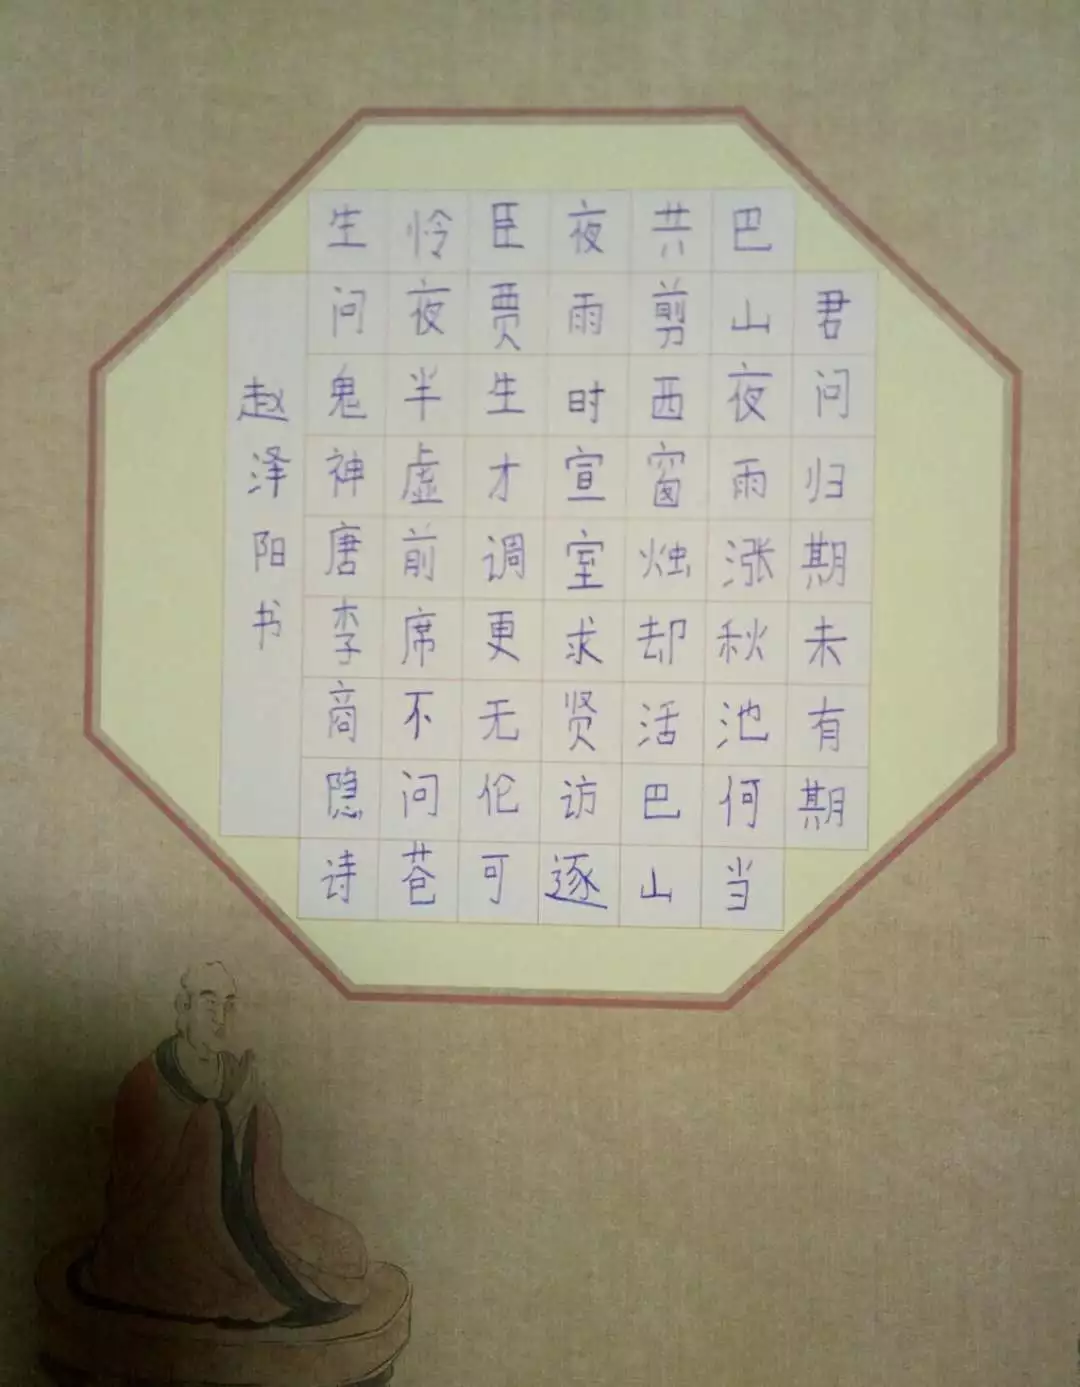 君问归期未有期
巴山夜雨涨秋池何当
共剪西窗烛却活巴山
夜雨时宣室求贤访逐
臣贾生才调更无伦可
怜夜半虚前席不问苍
生问鬼神唐李商隐诗
赵泽阳书